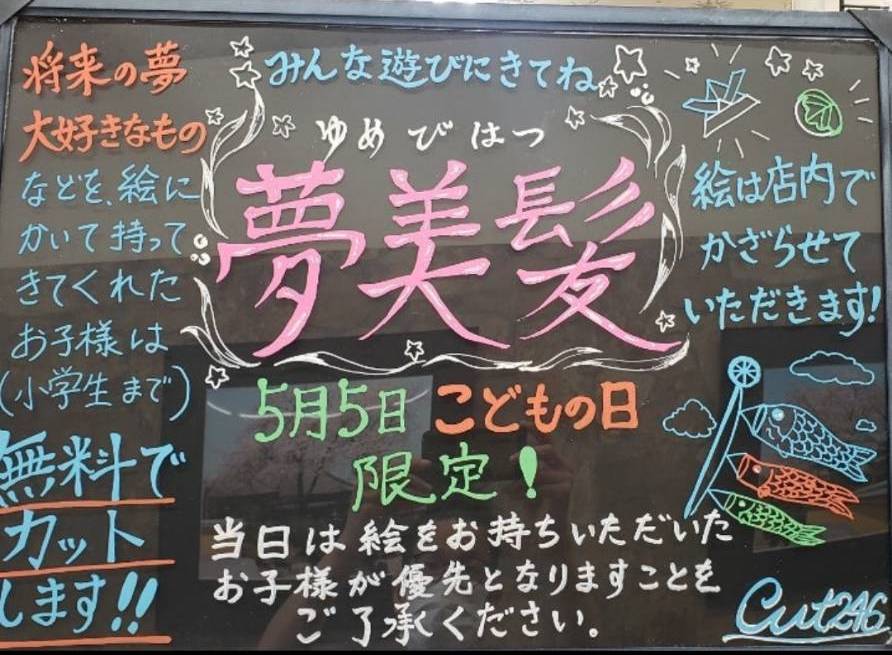 みんな遊びにきてね
将来の夢
大好きなもの
などを、絵に
かいて持って
きてくれた
お子様は
(小学生まで)
無料で
カット
します!!
ゆめびはつ
夢美髪
5月5日 こどもの日
限定!
当日は絵をお持ちいただいた
お子様が優先となりますことを
ご了承ください。
絵は店内で
かざらせて
いただきます!
Cut246